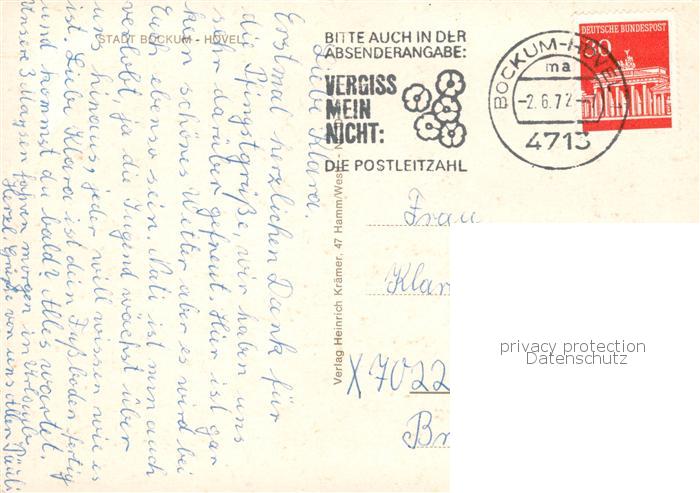 STADT BOCKUM - HÖVEL
Liebe Klara.
Erstmal herzlichen Dank für
die Pfingstgrüße, wir haben uns
sehr darüber gefreut. Hier ist gar
kein schönes Wetter aber es wird bei
Euch ebenso sein. ist nun auch
verlobt, ja die Jugend wächst über
uns hinaus, jeder will wissen wie is
ist. Liebe Klara ist dein Fußboden fertig
und kommst du bald? Alles wartet.
Unsere 3 fahren morgen in Urlaub.
Herzl. Grüße von uns Allen
BITTE AUCH IN DER
ABSENDERANGABE:
VERGISS
MEIN
NICHT:
DIE POSTLEITZAHL
BOCKUM-HÖVEL
ma
-2.6.72-
4713
DEUTSCHE BUNDESPOST
30
Verlag Heinrich Krämer, 47 Hamm/Westf.
Frau
Klar
X 7022
Br
privacy protection
Datenschutz